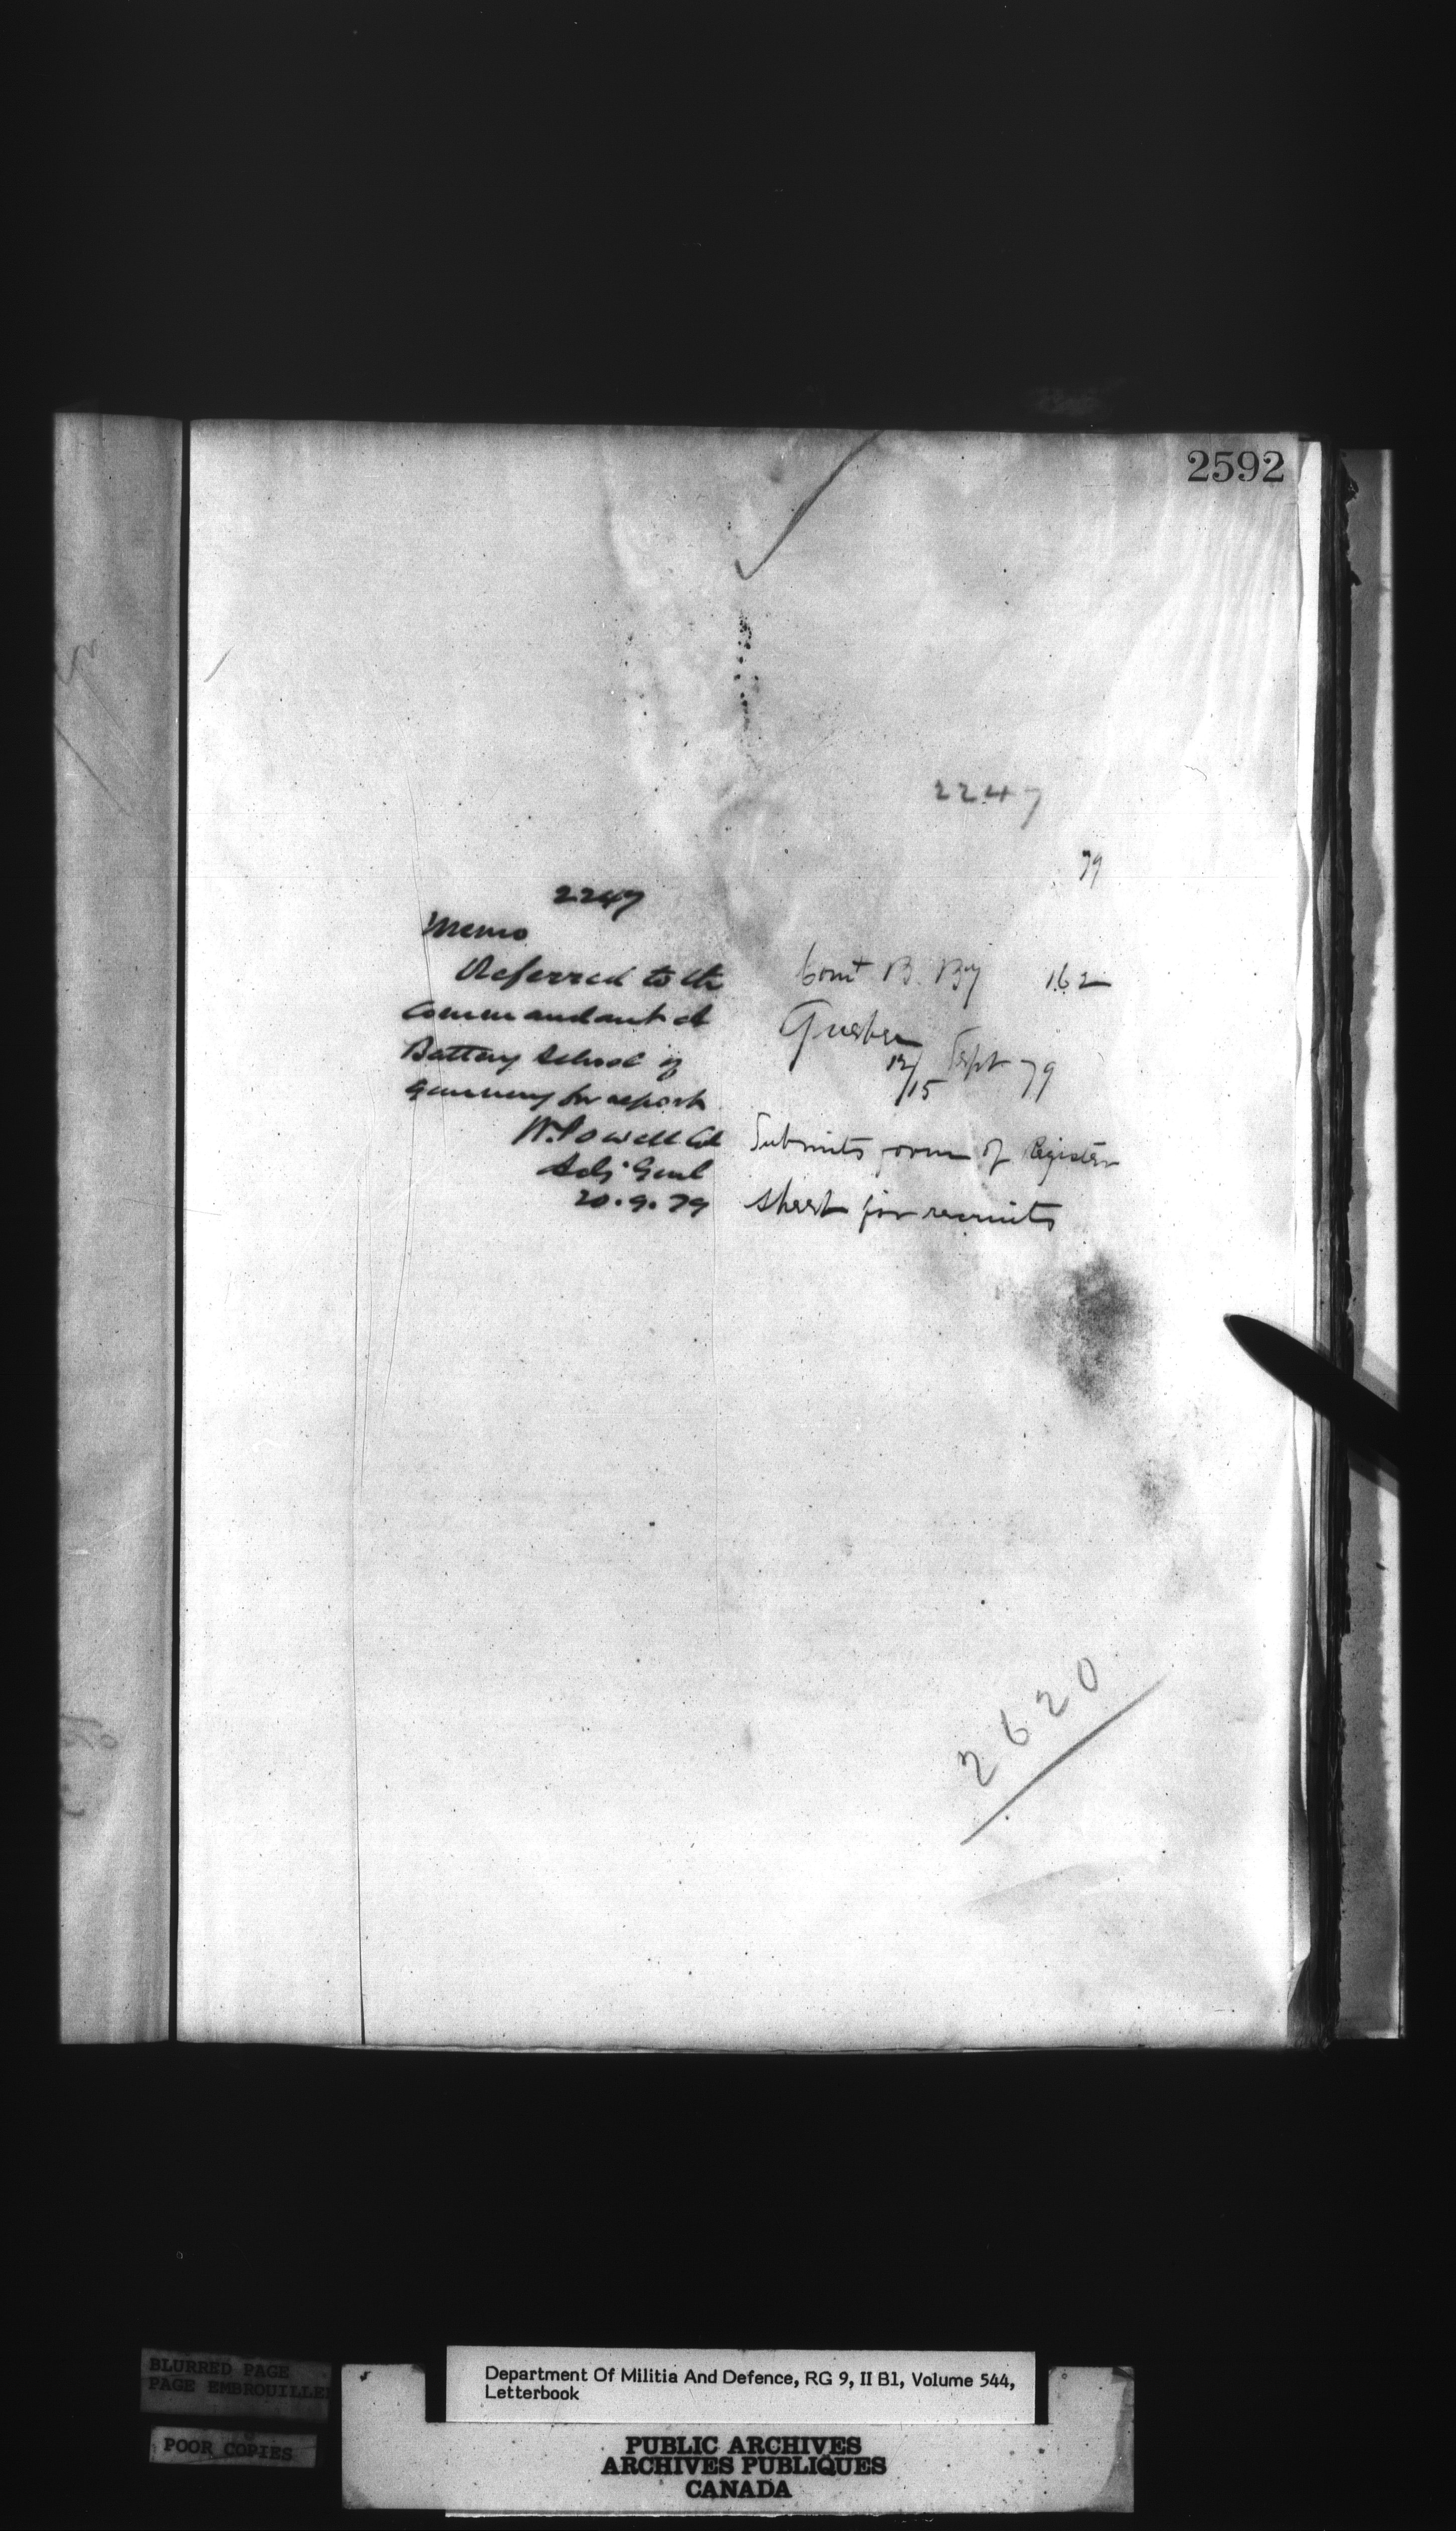 2592
2247
79
2247
Memo
Referred to the
Commandant A
Battery School of
Gunnery for report
W. Powell Col
Adj Genl
20.9.79
Comt B. By 162
Quebec
12/15 Sept 79
Submits form of Register
sheet for recruits
2620
BLURRED PAGE
PAGE EMBROUILLE
POOR COPIES
Department Of Militia And Defence, RG 9, II B1, Volume 544,
Letterbook
PUBLIC ARCHIVES
ARCHIVES PUBLIQUES
CANADA